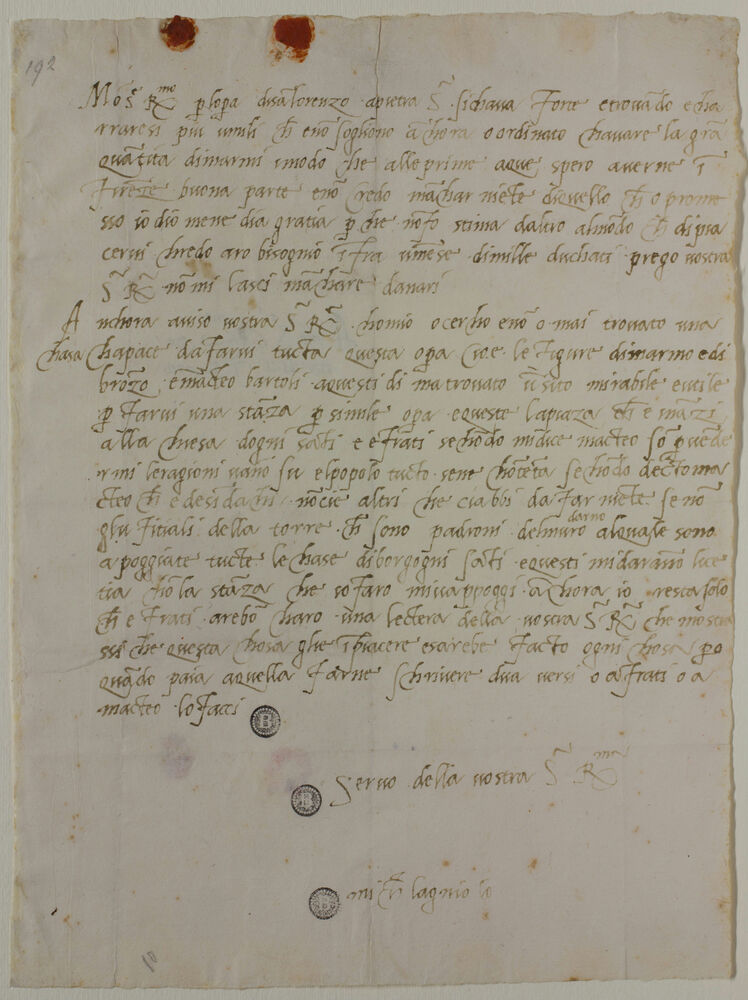 192
Mo͞s R͞mo p lopa disa͞lorenzo apietra S͞ta sichava forte e trova͞do e cha
rraresi piu umili ch eno͞ sogliono a͞chora o ordinato chavare la gra͞
qua͞tita di marmi i modo che alle prime aque spero averne i͞
fire͞ze buona parte e no͞ credo ma͞char nie͞te di quello ch o prome
sso idio mene dia gratia p che no͞ fo stima daltro almo͞do ch di pia
cervi chredo aro bisognio i͞fra u͞ mese di mille duchati prego vostra
S͞ R͞ no͞ mi lasci ma͞chare danari
Anchora aviso vostra S͞ R͞ chomio o cercho e no͞ o mai trovato una
chasa chapace da farvi tucta questa opa cioe le figure di marmo e di
bro͞zo e macteo bartoli a questi di ma trovato u͞ sito mirabile e utile
p farvi una sta͞za p simile opa e queste la piaza ch e i͞na͞zi
alla chiesa dogni sa͞ti e e frati secho͞do mi dice macteo so͞ p ve͞de
rmi le ragioni vano͞ su el popolo tucto sene cho͞te͞ta secho͞do decto ma
cteo ch e de sidachi no͞ cie altri che ciabbi da far nie͞te se no͞
gli ufitiali della torre ch sono padroni del muro darno al quale sono
apoggiate tucte le chase di borgogni sa͞ti e questi mi dara͞no lice
tia cho͞ la sta͞za che io faro mi vi appoggi a͞chora io resta solo
ch e frati arebo͞ charo una lectera della vostra S͞ R͞ che mostra
ssi che questa chosa gli e i͞ piacere e sarebe facto ogni chosa po
qua͞do paia a quella farne schrivere dua versi o a frati o a
macteo lo facci
Servo della vostra S͞ R͞ma
mich͞lagniolo
10